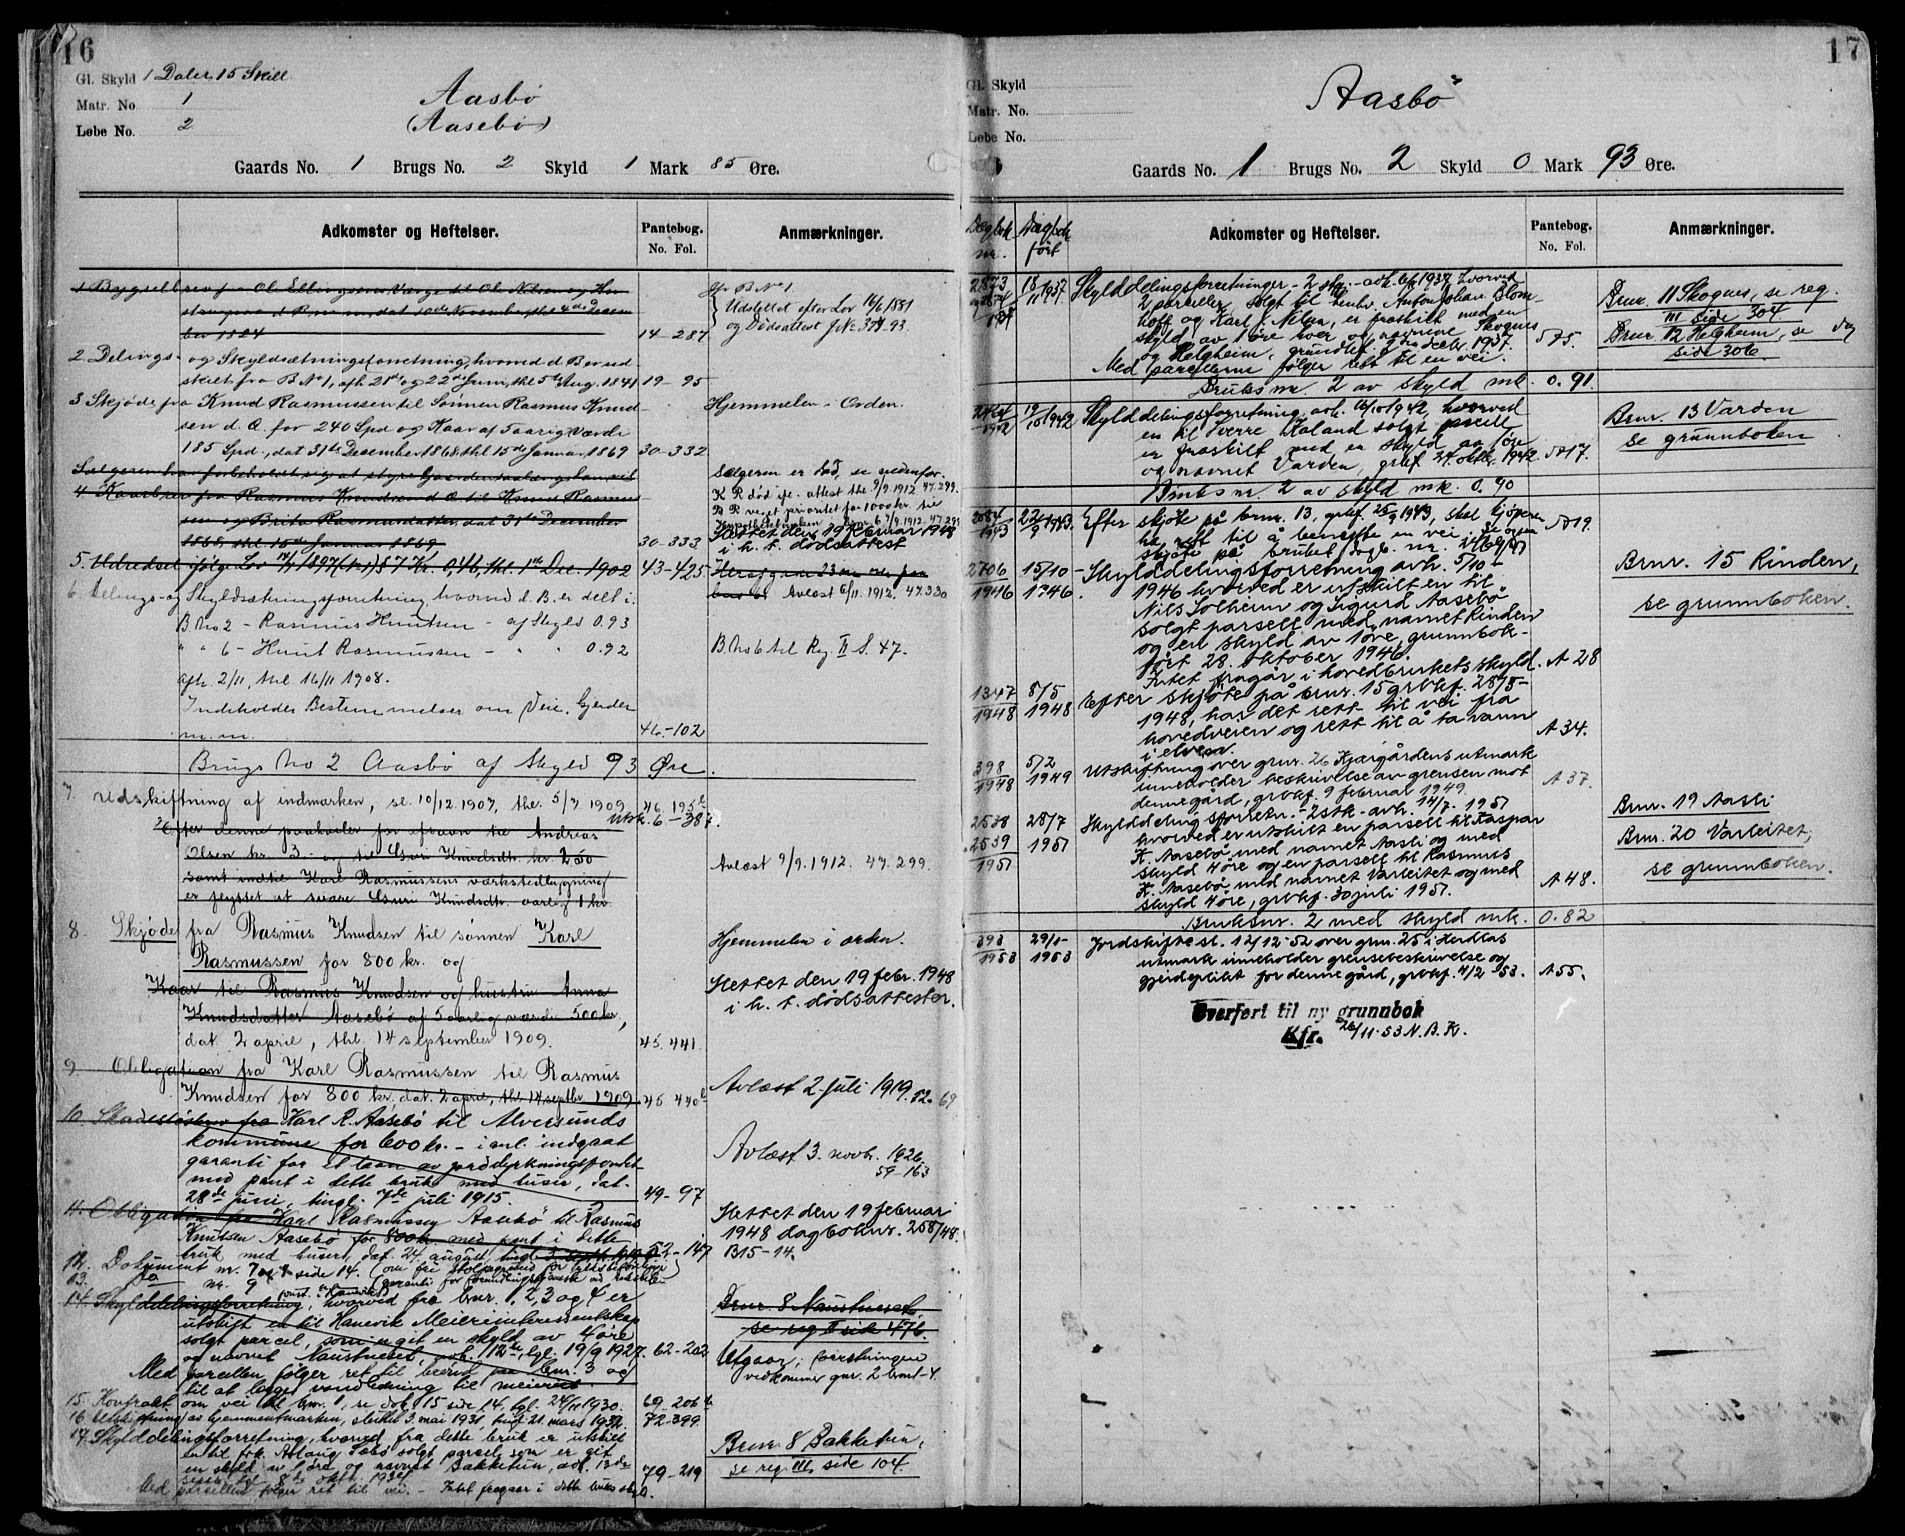 16
Gl. Skyld 1 Daler 15 Skill
Matr. No. 1
Løbe No. 2
Aasbø
(Aasebø)
Gaards No. 1 Brugs No. 2 Skyld 1 Mark 85 Øre.
Adkomster og Heftelser.
Pantebog.
No. Fol.
Anmærkninger.
1 Bygselbrev fra Ole Ellingsens Værge til Ole Nilsen og Hu-
struen d B
ber 1824 14-287
B No 1.
Udslettet efter Lov 16/6 1881
og Dødsattest
2 Delings- og Skyldsætningsforretning, hvorved d B er ud-
skilt fra B No 1, afh. 21de og 22de Juni, thl 5te Aug. 1841 19-95
3 Skjøde fra Knud Rasmussen til Sønnen Rasmus Knud-
sen d. A. for 240 Spd og Kaar af 5aarig Værdi
185 Spd., dat 31te Desember 1868 thl 15de Januar 1869 30-332
Hjemmelen i Orden.
Sælgeren har forbeholdt sig at styre Gaarden saalænge han vil
Sælgeren er død, se nedenfor.
4 Kaarbrev fra Rasmus Knudsen d A til Knud Rasmus-
sen og Brita Rasmusdatter, dat 31te December
1868, thl 15de Januar 1869 30-333
K R død ifø. attest thl. 9/9. 1912 47. 299.
Slettet den 19 februar 1948
i h. t. dødsattest
5. Udredsel ifølge Lov 1897 § 7 Kr. 0,46, thl. 1ste Dec. 1902 43-425
Avlæst 6/11. 1912. 47.330
6. Delings- og Skyldsætningsforretning, hvorved d. B. er delt i:
B No 2 - Rasmus Knutsen - af Skyld 0.93
" " 6 - Knut Rasmussen - " " 0.92
B. No 6 til Reg. II S. 47.
afh. 2/11, thl 16/11 1908.
Indeholder Bestemmelser om Veie, Gjerder
m.m. 46.-102
Brugs No 2 Aasbø af Skyld 93 Øre.
7. Udskiftning af indmarken, sl. 10/12 1907, thl. 5/7 1909 46. 195b
Utsk. 6-387.
Efter denne paahviler for afsavn til Andreas
Olsen kr. 3.- og til Guri Knudsdtr. kr 2.50
samt indtil Karl Rasmussens værkstedbygning
er flyttet at svare Guri Knudsdtr. aarlig 1 kr.
Avlæst 9/9. 1912. 47. 299.
8. Skjøde fra Rasmus Knudsen til sønnen Karl
Rasmussen for 800 kr. og
Kaar til Rasmus Knudsen og hustru Anna
Knudsdatter Aasebø af 5 aarlig værdi 500 kr,
dat. 2 april, thl. 14 september 1909. 45. 441
Hjemmelen i orden.
Slettet den 19 febr. 1948
i h. t. dødsattester.
9. Obligation fra Karl Rasmussen til Rasmus
Knudsen for 800 kr. dat. 2 april, thl. 14 septbr. 1909 45-440b
Avlæst 2. juli 1919. 52-69
10. Skadesløsbrev fra Karl R. Aasebø til Alversunds
kommune for 600 kr. - i anl. indgaat
garanti for et laan av jorddyrkningsfondet
med pant i dette bruk med huser, dat.
28de juni, tingl. 7de juli 1915. 49-97
Avlæst 3. novbr. 1926
59-163
11. Obligation fra Karl Rasmussen Aasebø til Rasmus
Knutsen Aasebø for 800 kr. med pant i dette
bruk med huser, dat. 24 august, 52-147
Slettet den 19 februar
1948 dagboknr. 258/48.
B15-14.
12. Dokument nr. 7 og 8 side 14.
13. Do nr. 9
14. Skylddelingsforretning, hvorved fra bnr. 1, 2, 3 og 4 er
utskift en til Hanevik Meieriinteressentskap
solgt parcel, som er git en skyld av 4 øre
og navnet Naustneset, avh. 12te, tgl. 19/9 1927. 62-202
Bnr. 8 Naustneset
se reg. II side 476.
Utgaar, forretningen
vedkommer gnr. 2 bnr 4.
Med parcellen følger ret til bnr. 3 og
til at lægge vandledning til meieriet.
15. Kontrakt om vei til bnr. 1, se dok 15 side 14, tgl. 24/11 1930. 69-206b
16. Utskiftning av hjemmemarken, sluttet 3. mai 1931, tingl. 21. mars 1932. 72-399.
17. Skylddelingsforretning, hvorved fra dette bruk er utskilt
en til frk. Aslaug solgt parcel, som er git
en skyld av 1 øre og navnet Bakketun, avh. 13de
8de oktbr. 1934 79-219
Bnr. 8 Bakketun,
se reg. III side 104.
Med parcellen følger ret til vei. -
17
Gl. Skyld
Matr. No.
Løbe No.
Aasbø
Gaards No. 1 Brugs No. 2 Skyld 0 Mark 93 Øre.
Dagbok nr.
Dagbok ført
Adkomster og Heftelser.
Pantebog.
No. Fol.
Anmærkninger.
2873 1937 18/11 1937 Skylddelingsforretninger - 2 stk. - avh. 1937, hvorved
2 parceller, solgt til Anton Johan Blom-
hoff og Karl J. Nilsen, er fraskilt med en
skyld av 1 øre hver og navnene Skognes
og Helgheim, grundbf. decbr. 1937.
Med parcellerne følger rett til en vei.
Bnr. 11 Skognes, se reg.
III side 304.
Bnr. 12 Helgheim, se
side 306
Bruks nr. 2 av skyld mk. 0.91.
1942 19/10 1942 Skylddelingsforretning, avh. 16/10 1942, hvorved
en til Sverre Kaland solgt parsell
er fraskilt med en skyld av 1 øre
og navnet Varden, grbf. 24. oktbr. 1942. A17.
Bnr. 13 Varden
se grunnboken
Bruks nr. 2 av skyld mk. 0.90
2084 1943 22/9 1943. Efter skjøte på bnr. 13, grbf. 25/9 1943, skal kjøperen
ha rett til å benytte en vei A19.
skjøte på bruket dagb. nr.
2706 1946 15/10- 1946. Skylddelingsforretning avh. 5/10-
1946 hvorved er utskilt en til
Nils Solheim og Sigurd Aasebø
solgt parsell med namnet Rinden
og en skyld av 1 øre, grunnbok-
ført 28. oktober 1946.
Intet fragår i hovedbrukets skyld. A 28
Bnr. 15 Rinden,
se grunnboken.
1347 1948 8/5 1948 Efter skjøte på bnr. 15 grbkf. 28/5-
1948, har det rett til vei fra
hovedveien og rett til å ta vann
i elven. A 34.
398 1948 5/2 1949 Utskiftning over grnr. 26 Kjærgårdens utmark
inneholder beskrivelse av grensen mot
denne gård, grbkf. 9 februar 1949. A 37.
2538 2539 1951 28/7 1951 Skylddelingsforretn. - 2 stk - avh. 14/7. 1951
hvorved er utskilt en parsell til Kaspar
K. Aasebø med namnet Aasli og med
skyld 4 øre og en parsell til Rasmus
K. Aasebø med namnet Varleitet og med
skyld 4 øre, grbkf. 30 juli 1951. A 48.
Bnr. 19 Aasli
Bnr. 20 Varleitet,
se grunnboken.
Bruksnr. 2 med skyld mk. 0.82
393 1953 29/1- 1953 Jordskiftesl. 12/12-52 over grnr. 25 i Herdlas
utmark inneholder grensebeskrivelse og
gjerdeplikt for denne gård, grbkf. 4/2 53. A 55.
Overført til ny grunnbok
Kfr. 26/11-53 N. B. K.